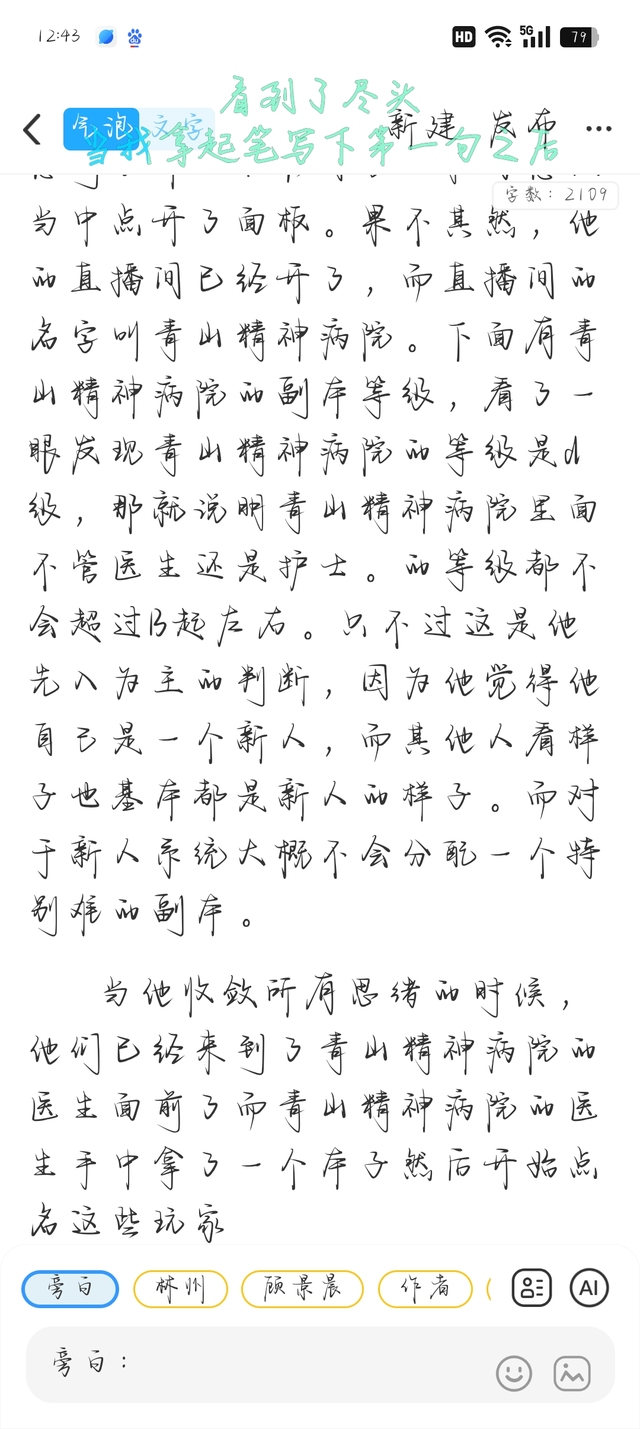 12:43
HD
5G
79
看到了尽头
气泡
文字
新建
发布
当我拿起笔写下第一句之后
字数：2109
当中点开了面板。果不其然，他
的直播间已经开了，而直播间的
名字叫青山精神病院。下面有青
山精神病院的副本等级，看了一
眼发现青山精神病院的等级是d
级，那就说明青山精神病院里面
不管医生还是护士。的等级都不
会超过B起左右。只不过这是他
先入为主的判断，因为他觉得他
自己是一个新人，而其他人看样
子也基本都是新人的样子。而对
于新人系统大概不会分配一个特
别难的副本。
当他收敛所有思绪的时候，
他们已经来到了青山精神病院的
医生面前了而青山精神病院的医
生手中拿了一个本子然后开始点
名这些玩家
旁白
林州
顾景晨
作者
AI
旁白：